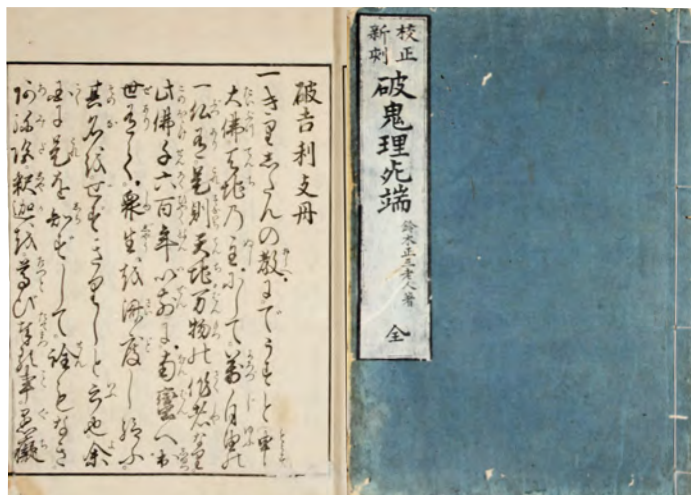 校正
新刻
破鬼理死端
鈴木正三老人著
全
破吉利支丹
一きりしたんの教にでうすと申
大佛天地の主にして萬自由の
一仏有是則天地万物の作者なり
此佛千六百年以前に南蠻へ出
世有て衆生を済度し給ふ
其名をぜずきりしとと云也余
国に是を知ずして詮もなき
阿弥陀釈迦を尊び奉事愚癡